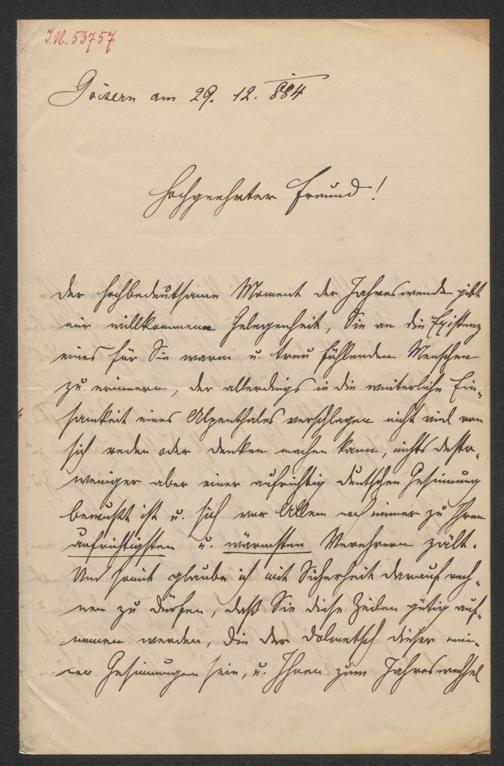 I.N. 53757
Goisern am 29. 12. 884
Hochgeehrter Freund!
Der hochbedeutsame Moment der Jahreswende gibt
mir willkommene Gelegenheit, Sie an die Existenz
eines für Sie warm u. treu fühlenden Menschen
zu erinnern, der allerdings in die winterliche Ein-
samkeit eines Alpenthales verschlagen nicht viel von
sich reden oder denken machen kann, nichts desto-
weniger aber einer aufrichtig deutschen Gesinnung
bewußt ist u. sich vor Allem noch immer zu Ihren
aufrichtigsten u. wärmsten Verehrern zält.
Und somit glaube ich mit Sicherheit darauf rech-
nen zu dürfen, daß Sie diese Zeilen gütig auf-
nemen werden, die der Dolmetsch dieser mei-
ner Gesinnungen sein, u. Ihnen zum Jahreswechsel